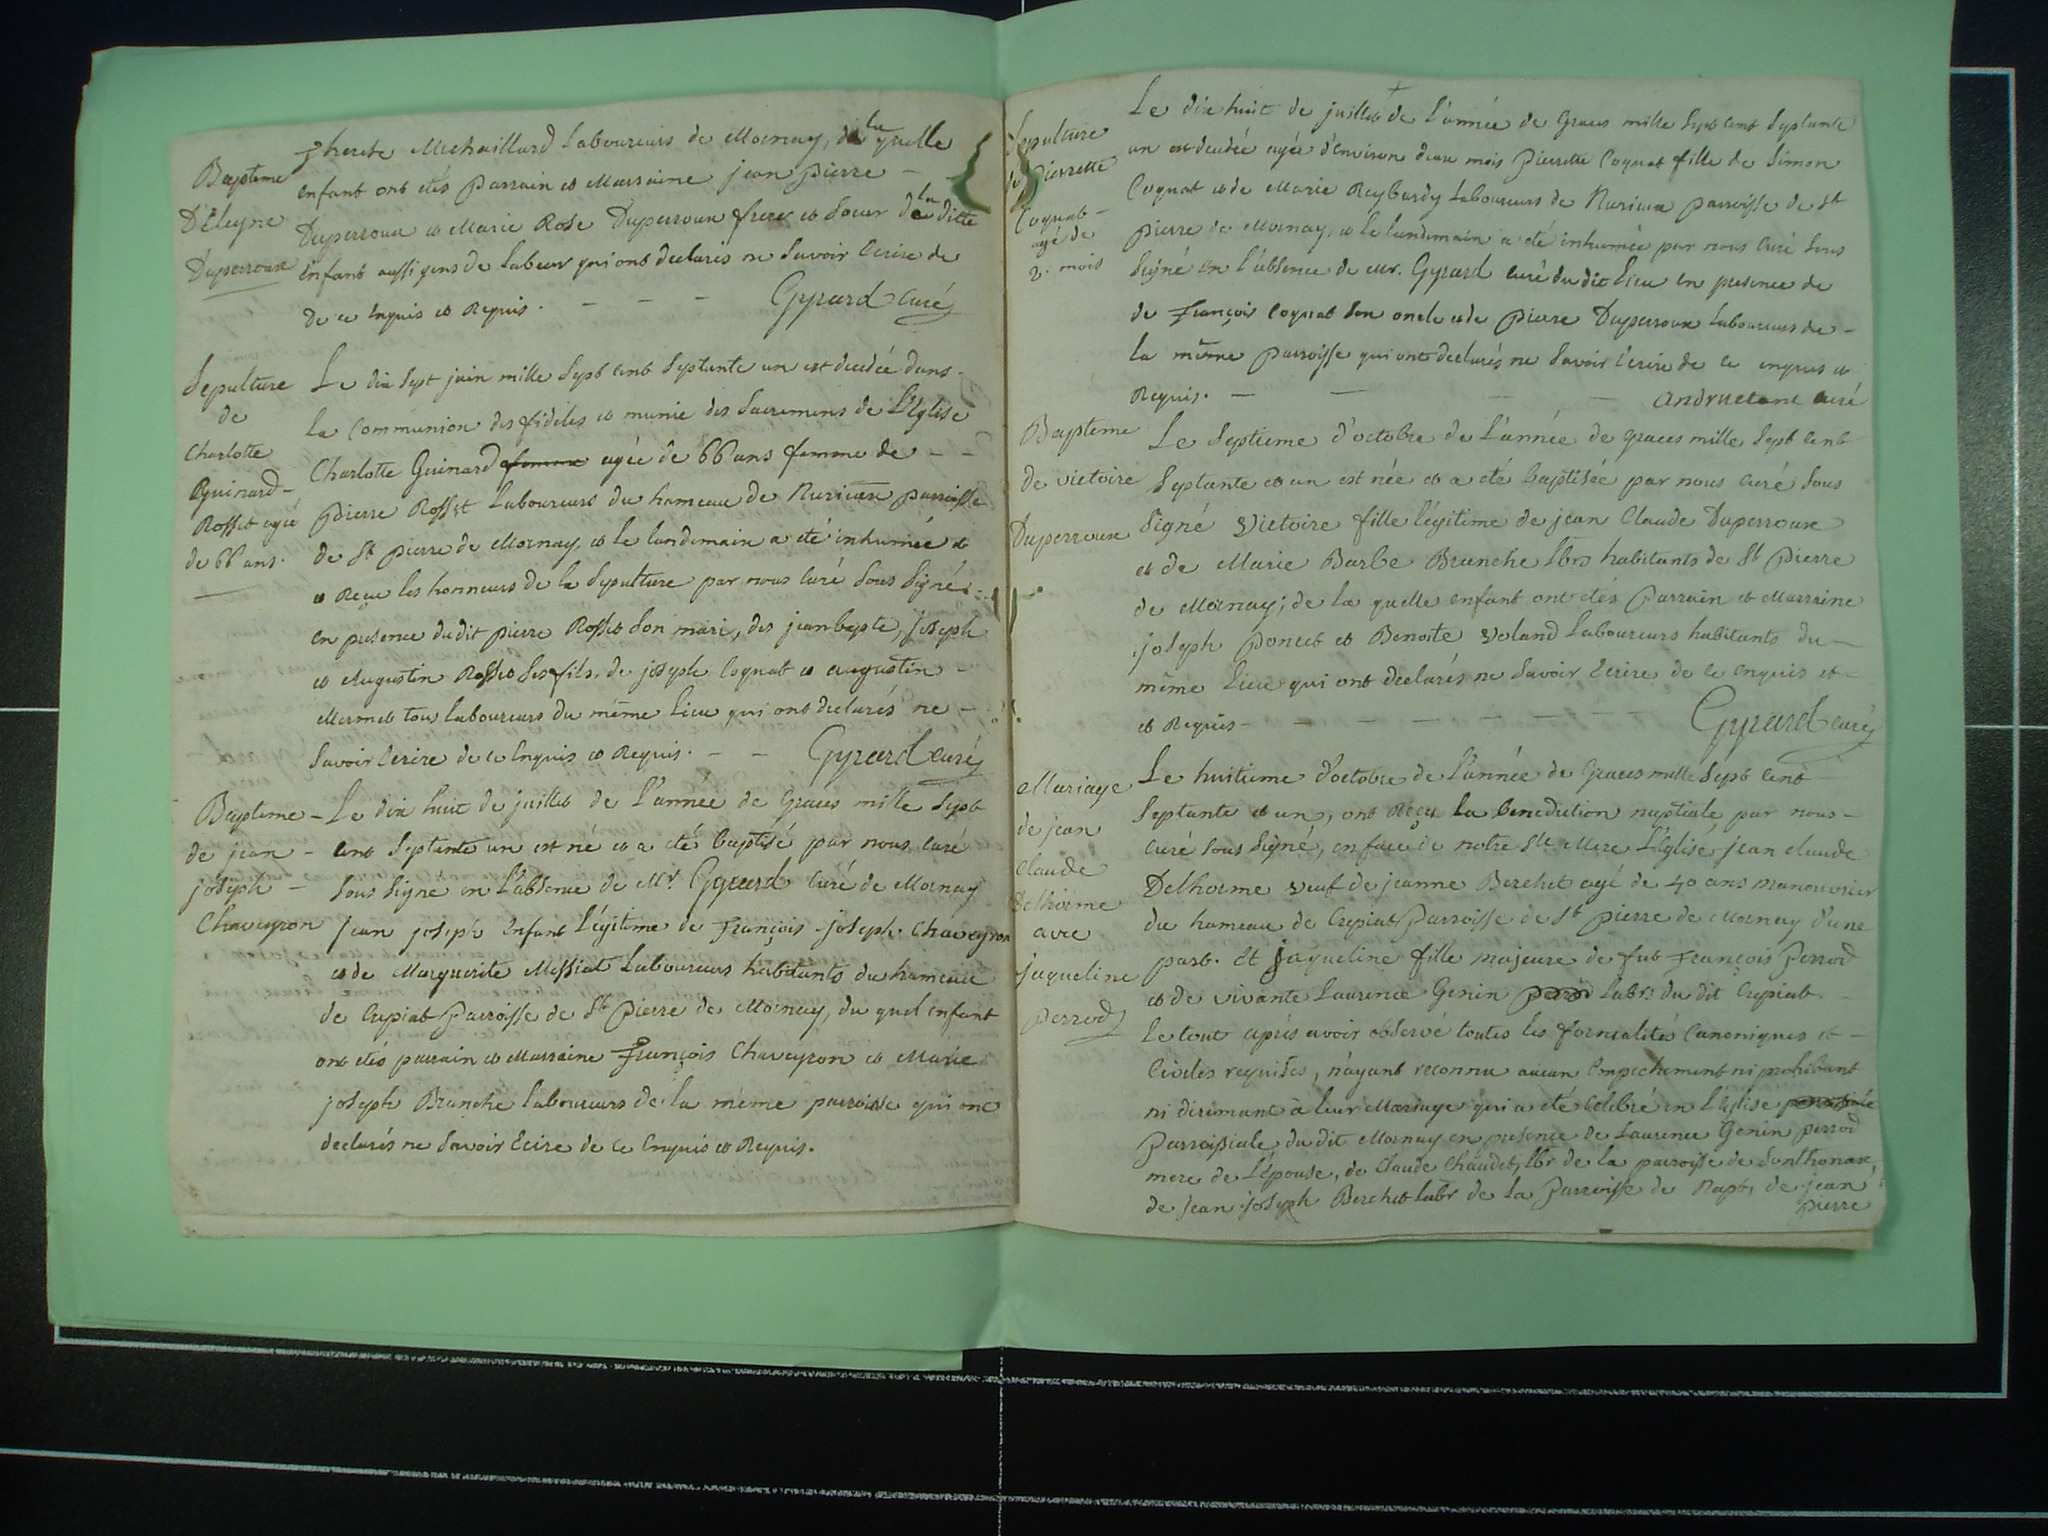 Baptême
D'Eleyne
Duperroux
Therese Michaillard Laboureurs de Mornay, de la quelle
enfant ont étés Parrain et Marraine jean pierre -
Duperroux et Marie Rose Duperroux frere et Soeur de la ditte
Enfant aussi gens de Labeur qui ont declarés ne Savoir Ecrire de
de ce Enquis et Requis. - - - Gyrard Curé
Sepulture
de
Charlotte
Guinard -
Rosset agée
de 66 ans.
Le dix Sept juin mille Sept Cent Septante un est decedée dans -
La Communion des fideles et munie des Sacremens de L'Eglise
Charlotte Guinard femme agée de 66 ans femme de - -
pierre Rosset Laboureurs du hameau de Nurieux parroisse
de St pierre de Mornay, et le landemain a été inhumée et
et Reçue les honneurs de la Sepulture par nous Curé Sous Signé.
en presence du dit pierre Rosset Son mari, des jean bapte, joseph
et Augustin Rosset Ses fils, de joseph Cognat et augustin -
Mermet tous Laboureurs du même Lieu qui ont declarés ne -
Savoir Ecrire de ce Enquis et Requis. - - Gyrard Curé
Baptême -
de jean -
joseph -
Chaveyron
Le dix huit de juillet de L'année de Graces mille Sept
Cent Septante un est né et a été baptisé par nous Curé
Sous Signé en L'absence de Mr Gyrard Curé de Mornay
Jean joseph Enfant Légitime de François joseph Chaveyron
et de Marguerite Messiat Laboureurs habitants du hameau
de Crepiat Parroisse de St Pierre de Mornay, du quel enfant
ont étés parrain et Marraine François Chaveyron et Marie
joseph Branche Laboureurs de la même parroisse qui ont
declarés ne Savoir Ecire de ce Enquis et Requis.
Sepulture
de Pierrette
Cognat -
agé de
2. mois
Le dix huit de juillet de L'année de Graces mille Sept Cent Septante
un est decedée agée d'environ deux mois Pierrette Cognat fille de Simon
Cognat et de Marie Reybardy Laboureurs de Nurieux parroisse de St
Pierre de Mornay, et le landemain a été inhumée par nous Curé Sous
Signé en L'absence de mr. Gyrard curé du dit Lieu en presence de
de François Cognat Son oncle et de Pierre Duperroux Laboureurs de -
la même parroisse qui ont declarés ne Savoir Ecrire de ce enquis et
Requis. - - - - Andruetant curé
Baptême
de victoire
Duperroux
Le Septieme d'octobre de L'année de graces mille Sept Cent
Septante et un est née et a été baptisée par nous Curé Sous
Signé Victoire fille légitime de jean Claude Duperroux
et de Marie Barbe Branche lbrs habitants de St Pierre
de Mornay; de la quelle enfant ont étés Parrain et Marraine
joseph Poncet et Benoite Voland Laboureurs habitants du -
même Lieu qui ont declarés ne Savoir Ecrire de ce Enquis et -
et Requis - - - - - - - Gyrard curé
Mariage
de jean
Claude
Delhorme
avec
Jaqueline
Perrod
Le huitieme d'octobre de L'année de Graces mille Sept Cent
Septante et un, ont Reçu La Benediction nuptiale par nous -
Curé Sous Signé, en face de notre Ste Mere L'Eglise, jean claude
Delhorme veuf de jeanne Berchet agé de 40 ans manouvrier
du hameau de Crepiat Parroisse de St Pierre de Mornay d'une
part. Et Jaqueline fille majeure de fut François Perrod
et de vivante Laurence Genin perrod Labrs du dit Crepiat.
Le tout après avoir observé toutes les formalités Canoniques et -
Civiles requises, n'ayant reconnu aucun Empechement ni prohibant
ni dirimant à leur Mariage qui a été Celebré en L'Eglise
Parroissiale du dit Mornay en presence de Laurence Genin perrod
mere de L'épouse, de Claude Chaudet, lbr de la parroisse de Sonthonax,
de jean joseph Berchet Labr de La Parroisse de Napt, de jean
pierre